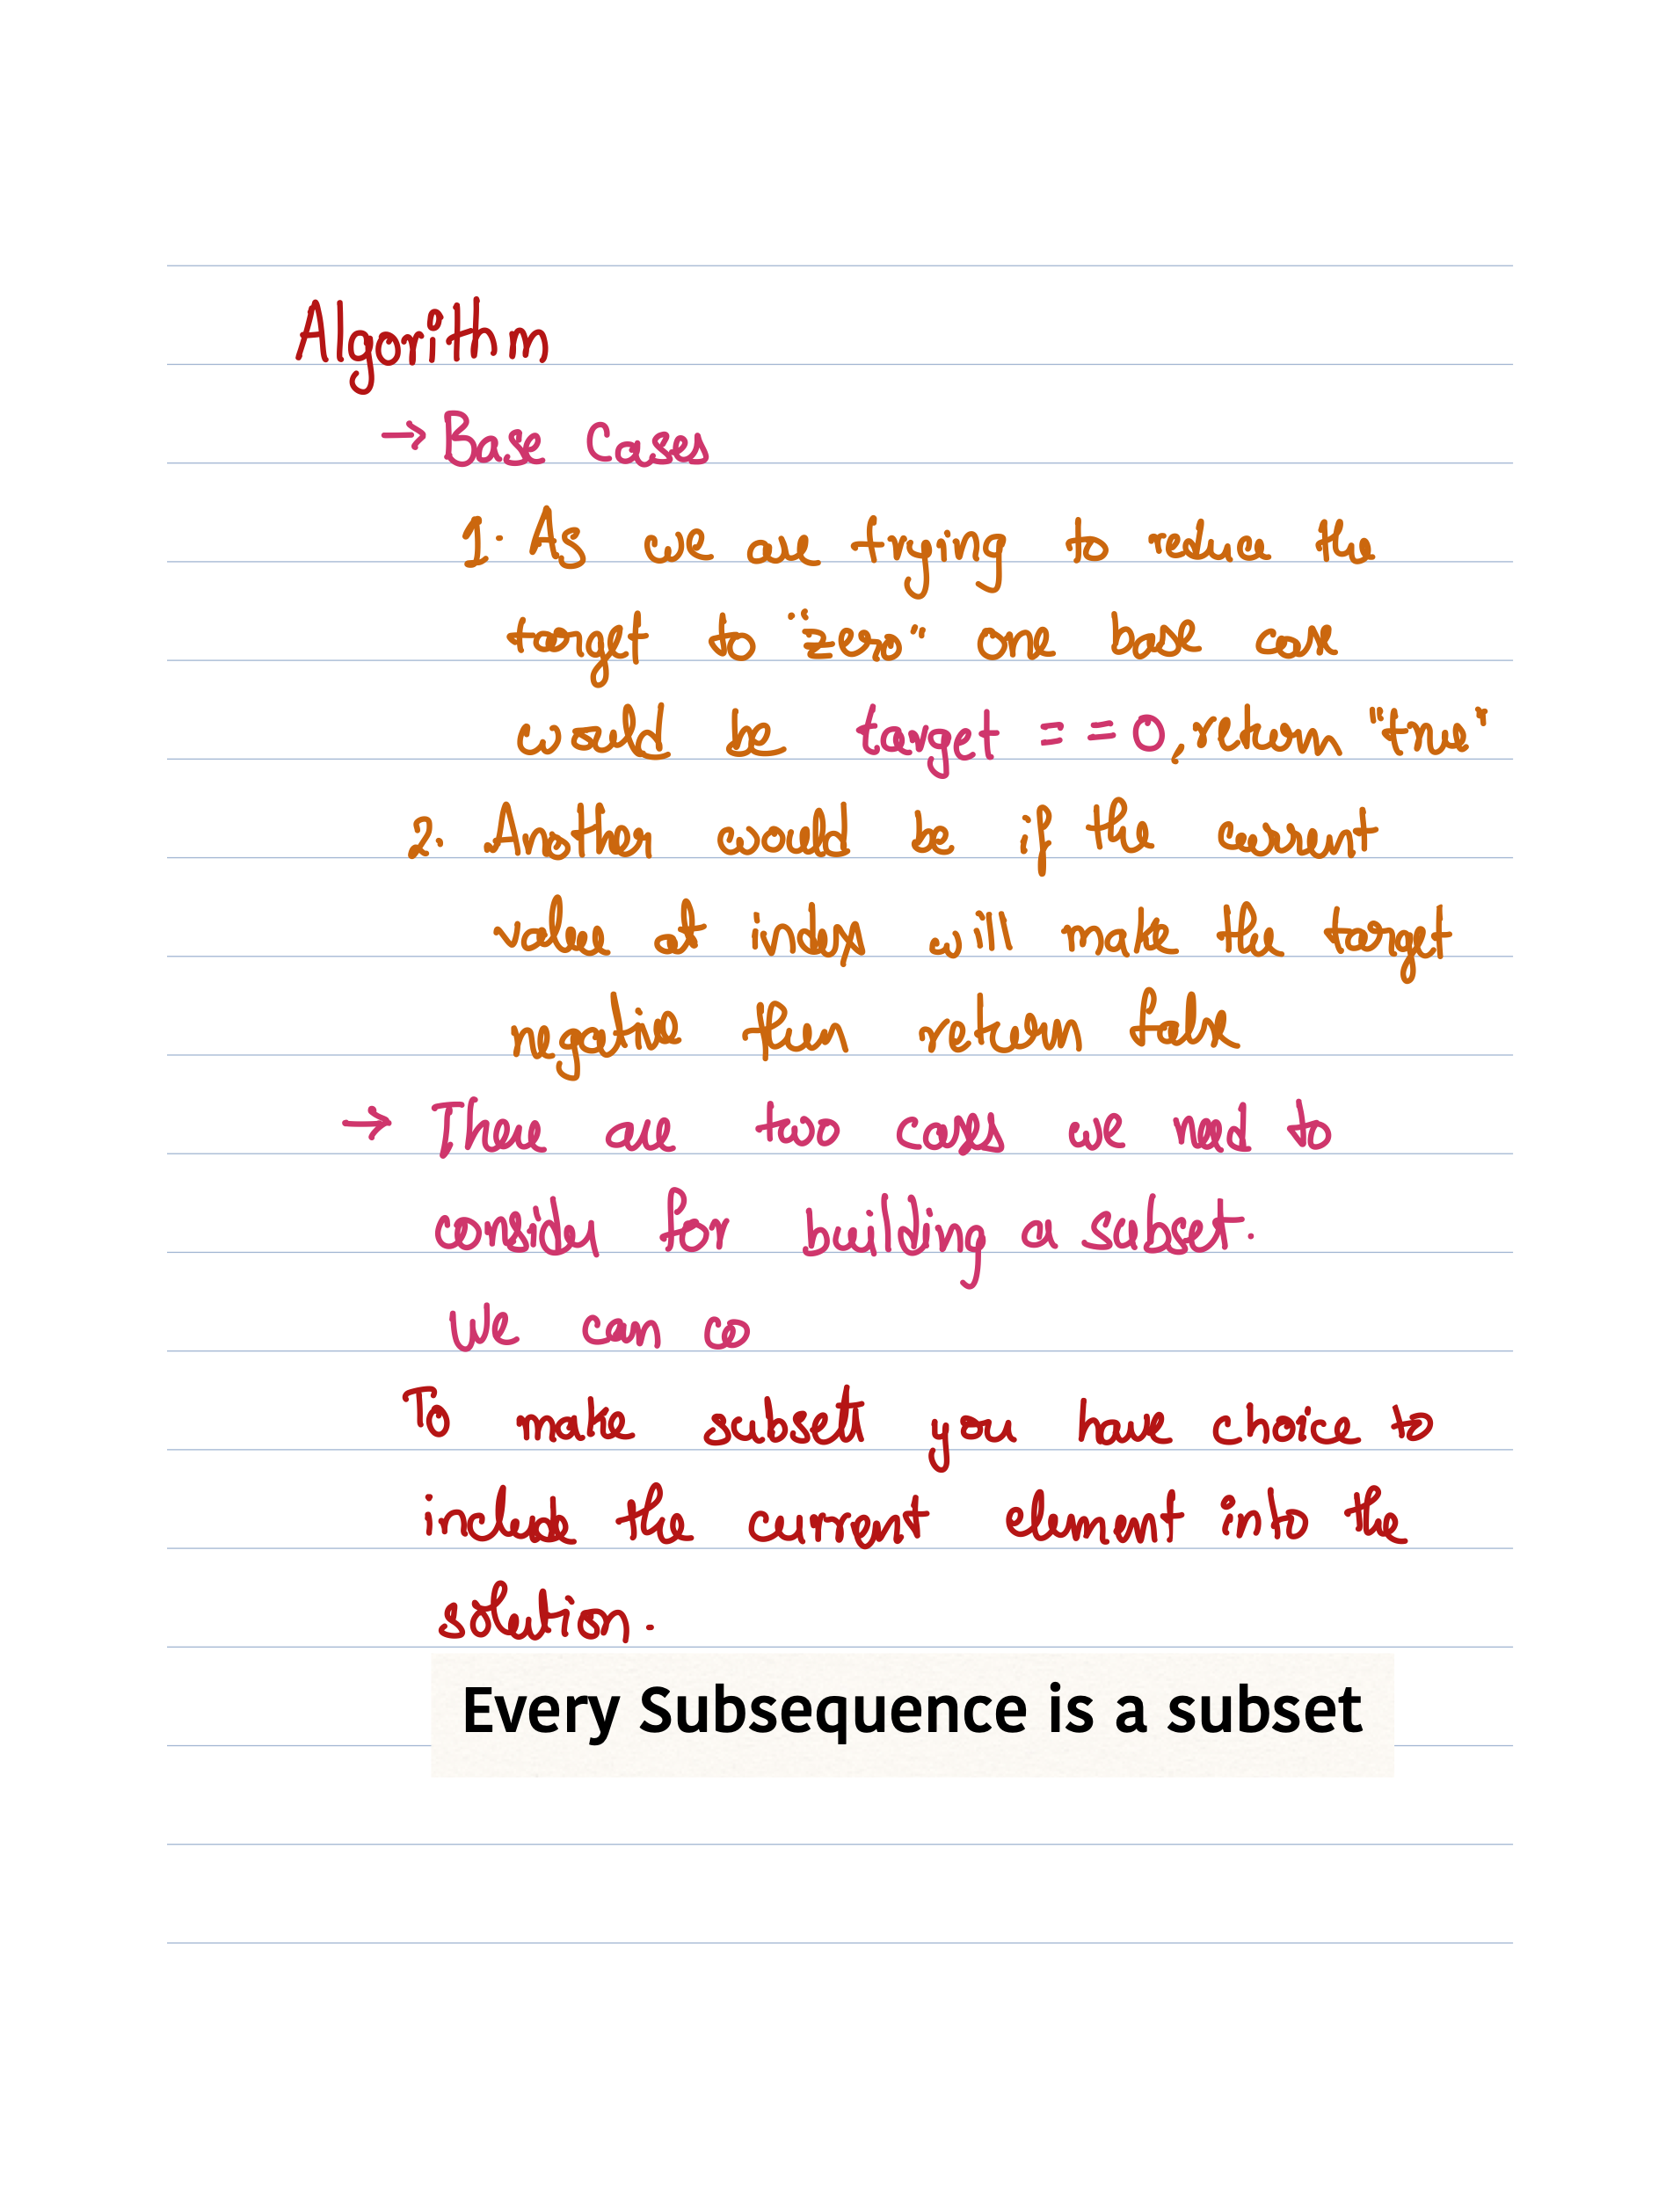 Algorithm
→ Base Cases
1. As we are trying to reduce the
target to "zero" one base case
would be target == 0, return "true"
2. Another would be if the current
value at index will make the target
negative then return false
→ There are two cases we need to
consider for building a subset.
We can co
To make subsets you have choice to
include the current element into the
solution.
Every Subsequence is a subset